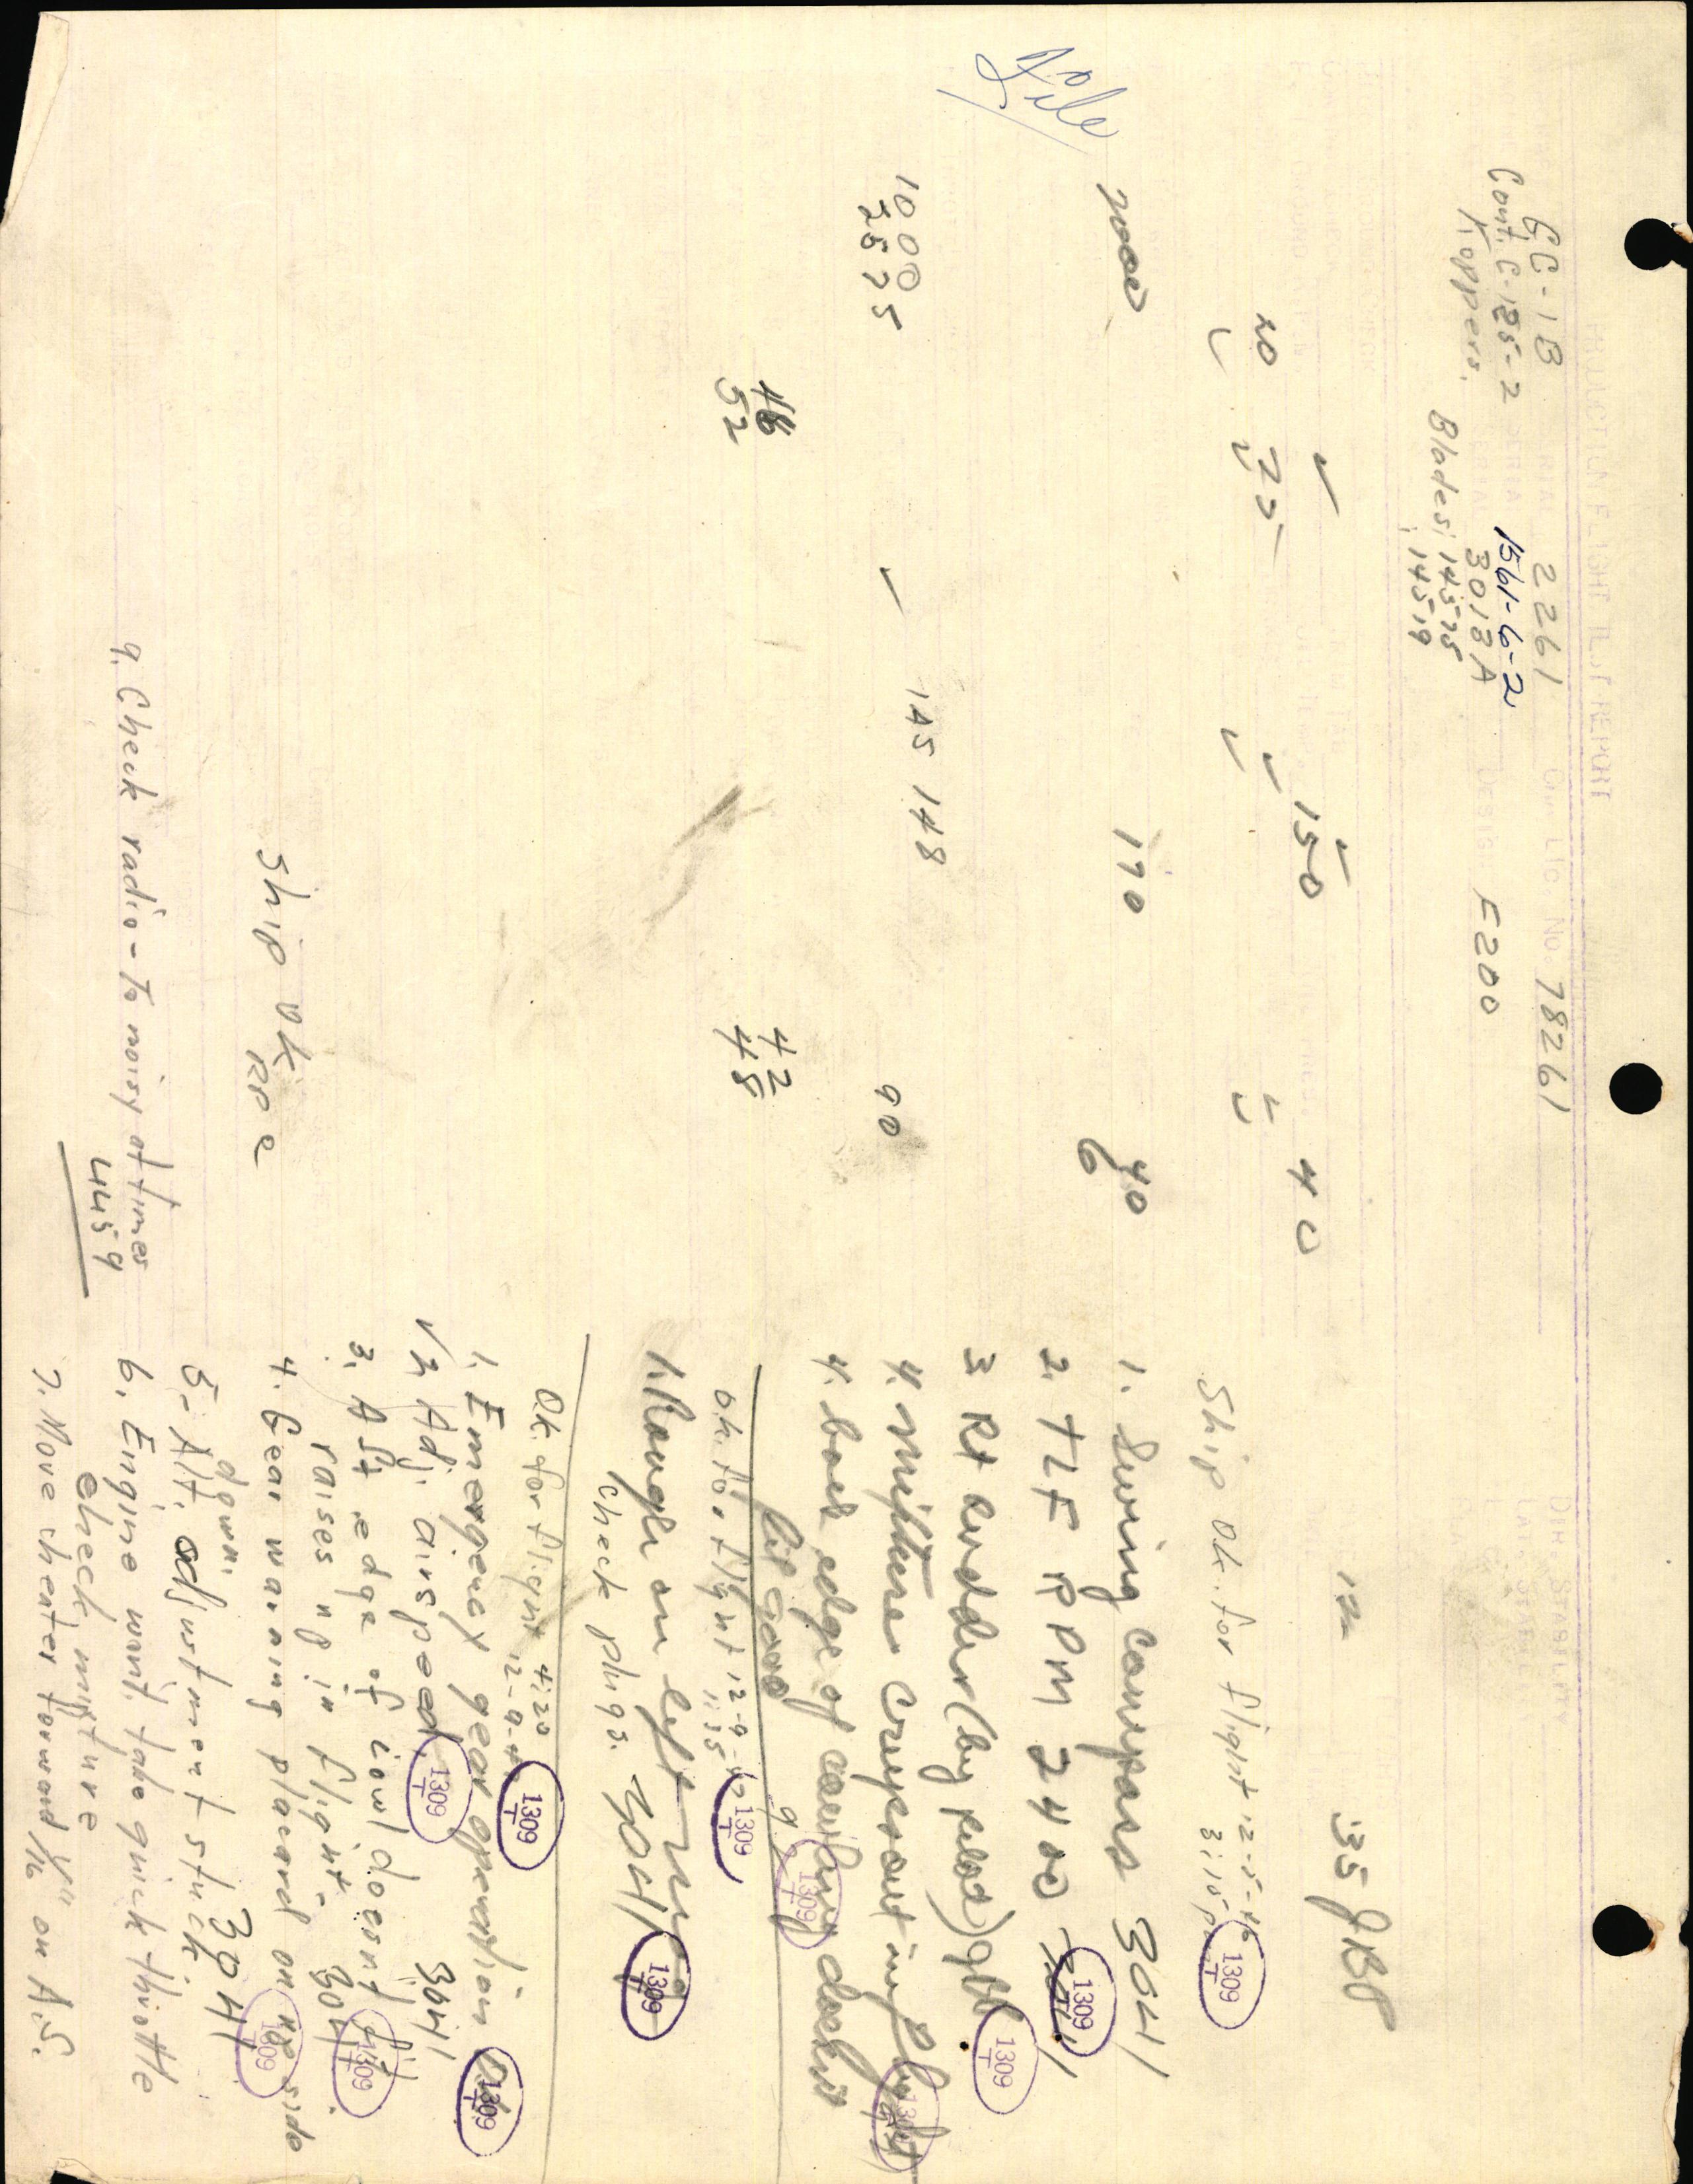 File
GC-1B 2261 78261
Cont. C-125-2 1561-6-2
Koppers. 3018A F200
Blades: 14575
14519
150 40 12 35 JBP
20 75
Ship Ok. for flight 12-5-46
3:15 P
1309
T
190 40
6
1. Swing compass 3041
2. TLF RPM 2400
1309
T
3 Rt rudder (by pilot)
1309
T
4. mixture creeps out in flight
1309
T
4. back edge of cowling doesn't
fit good
1309
T
1000
2575
145 148 90
48 42
52 48
Ok. for flight 12-9-46
1:35
1309
T
1. Rough on left mag
check plugs.
3041
1309
T
Ok. for flight 4:20
12-9-46
1309
T
1. Emergency gear operation Ok
1309
T
2. Adj. airspeed. 3041
1309
T
3. Aft edge of cowl doesnt fit
raises up in flight. 3041
1309
T
4. Gear warning placard on up side
down.
1309
T
5. Alt. adjustment stuck 3041
6. Engine wont take quick throttle
check mixture
7. Move cheater forward 1/16" on A.S.
Ship Ok
9. Check radio - To noisy at times
4459
PRODUCTION FLIGHT TEST REPORT